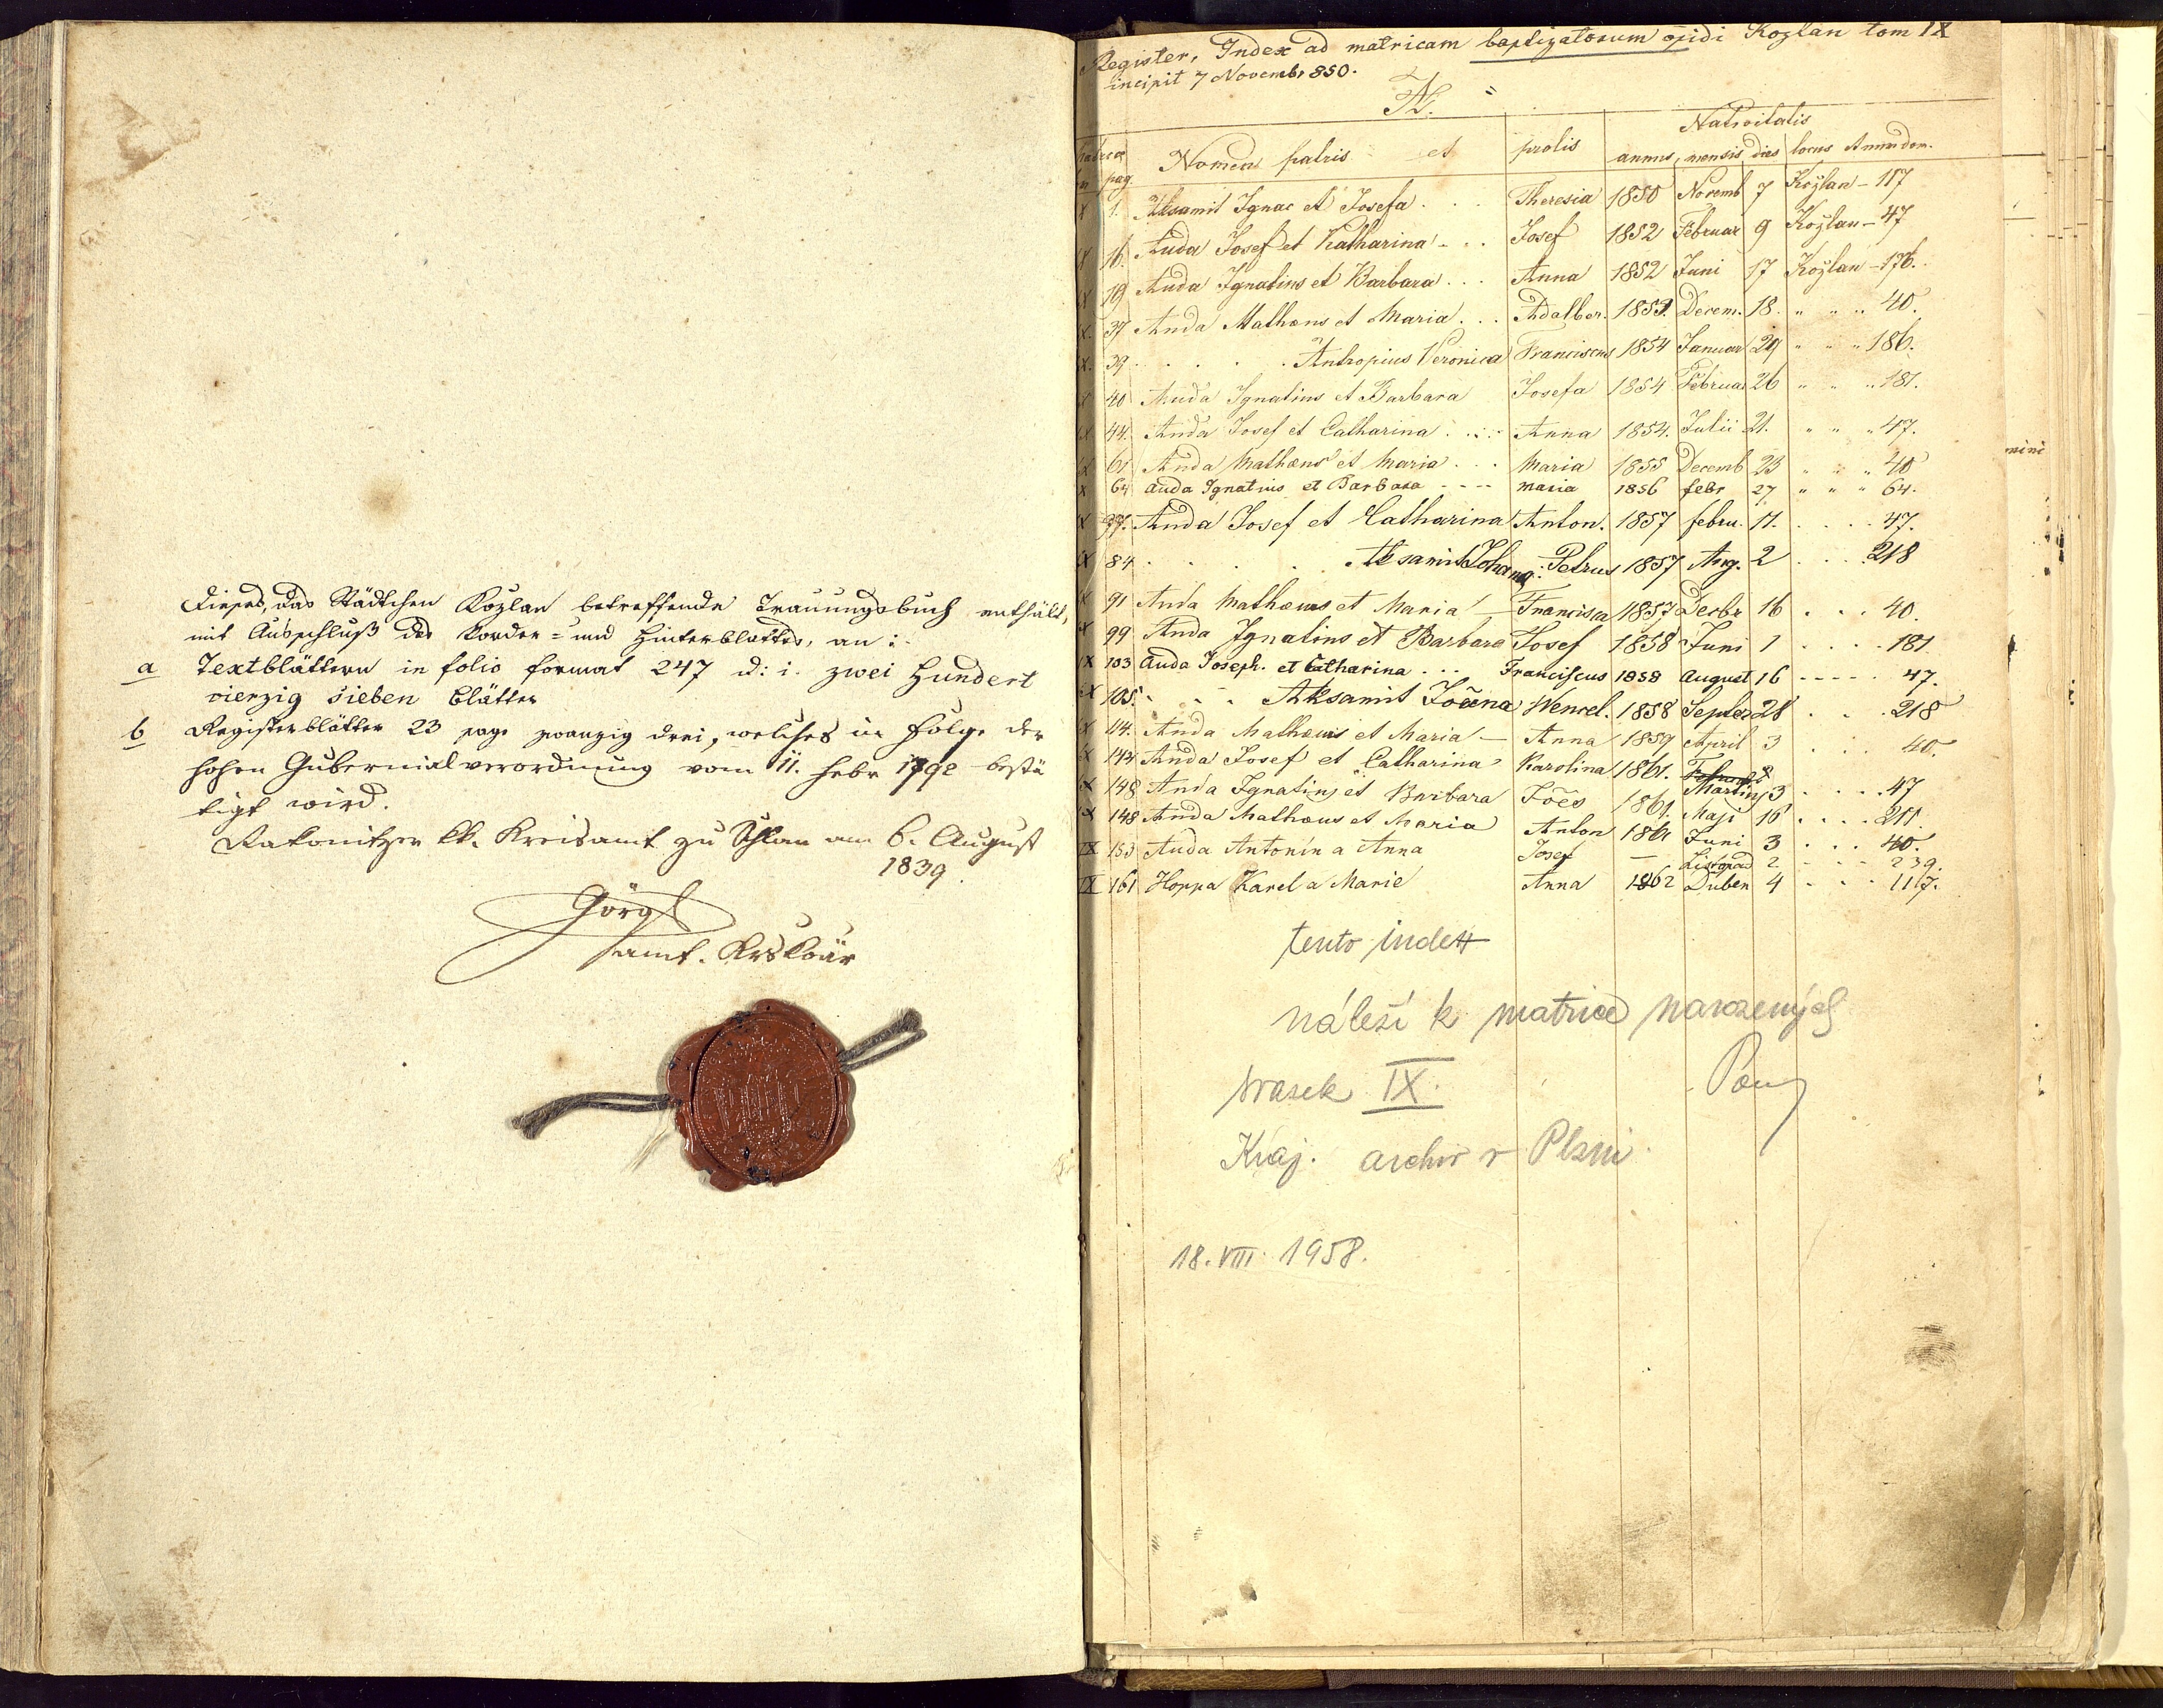 Dieses, das Städtchen Kozlan betreffende Trauungsbuch enthält,
mit Ausschluß des Vorder- und Hinterblattes, an:
a Textblättern in folio format 247 d: i. zwei Hundert
vierzig sieben Blätter
b Registerblätter 23 sage zwanzig drei, welches in Folge der
hohen Gubernialverordnung vom 11. Febr 1792 bestä
tigt wird.
Rakonitzer kk. Kreisamt zu Schlan am 6. August
1839.
Görgl
Register, Index ad matricam baptizatorum opidi Kozlan tom IX
incipit 7 Novemb. 850.
A.
Nativitatis
pag Nomen patris et prolis annus, mensis, dies locus Numer dom.
1. Aksamit Ignac et Josefa . . . Theresia 1850 Novemb 7 Kožlan - 117
IX 16. Auda Josef et Katharina - . . Josef 1852 Februar 9 Kožlan - 47
IX 19 Auda Ignatius et Barbara . . . Anna 1852 Juni 17 Kožlan - 176.
IX. 37 Anda Mathæus et Maria . . . Adalber. 1853. Decem. 18. " " " 40.
IX. 39 . . . . . Antropius Veronica Franciscus 1854 Januar 29 " " " 186.
IX 40 Auda Ignatius et Barbara Josefa 1854 Februar 26 " " " 181.
IX 44. Anda Josef et Catharina . . . Anna 1854. Julii 21. " " " 47.
IX 61 Anda Mathæus et Maria . . . Maria 1855 Decemb 23 " " " 40
IX 64 Auda Ignatius et Barbara - - - maria 1856 febr 27 " " " 64.
IX 77. Anda Josef et Catharina Anton. 1857 febru. 11. . . . . 47.
IX 84 . . . . . Aksamit Johana. Petrus 1857 Aug. 2 . . . 218
IX 91 Anda Mathæus et Maria - Francisca 1857 Decbr 16 . . . 40.
IX 99 Anda Ignatius et Barbara Josef 1858 Juni 1 . . . . 181
IX 103 Auda Joseph. et Catharina . . . Franciscus 1858 August 16 - - - - - 47.
IX 105. - - - Aksamit Joãna Wencel. 1858 Septem 28 . . . 218
IX 114. Anda Mathæus et Maria - Anna 1859 April 3 . . . 40.
IX 144 Anda Josef et Catharina Karolina 1861. Martius 3 . . . . 47
IX 148 Anda Ignatius et Barbara Joẽs 1861. Maji 16 . . . . 211.
IX 148 Anda Mathæus et Maria Anton 1861 Juni 3 . . . 40.
IX 153 Auda Antonín a Anna Josef — Listopad 2 - - - 239.
IX 161 Hoppa Karel a Marie Anna 1862 Duben 4 - - - 117.
tento index
náleží k matrice narozených
svazek IX.
Kraj. archiv v Plzni
18. VIII. 1958.
mini